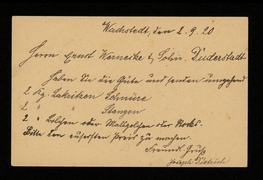 Wachstedt, den 2. 9. 20
Herrn Ernst Warnecke & Sohn, Duderstadt
Haben Sie die Güte und senden umgehend
2 Kg. Lakritzen Schnüre
2 " " Stangen
2 " oder Rocks.
Bitte den äußersten Preis zu machen.
Freundl. Gruß
Joseph